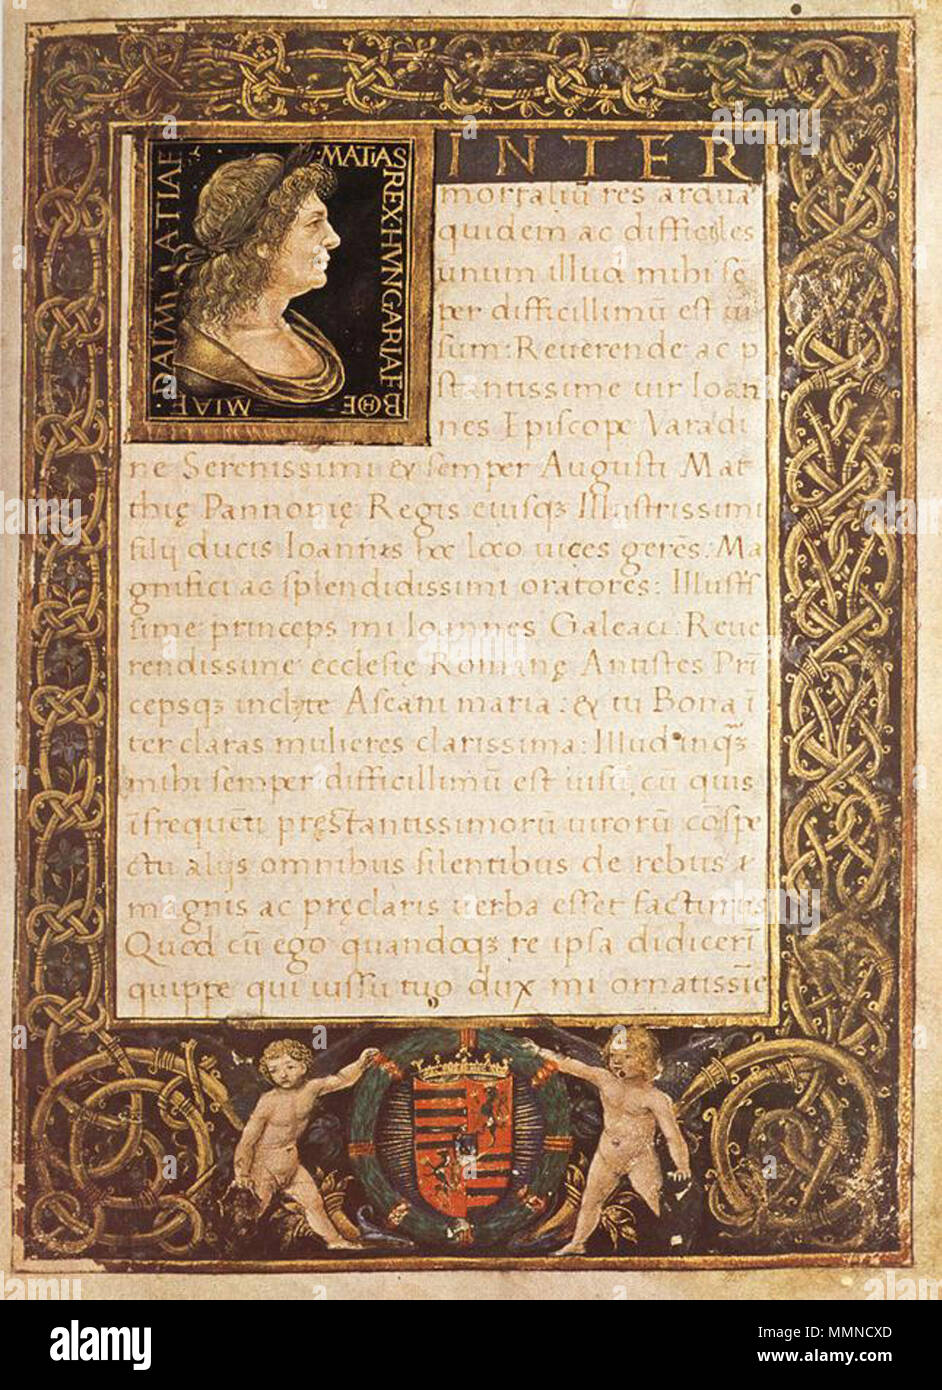 MATIAS
REX·HVNGARIAE
BOHE
MIAE
DALMATIAE
INTER
mortaliū res ardua
quidem ac difficiles
unum illud mihi sē
per difficillimū est ui
sum: Reuerende ac p
stantissime uir Ioan
nes Episcope Varadi
ne Serenissimi & semper Augusti Mat
thię Pannonię Regis eiusqꝫ Illustrissimi
filij ducis Ioannis hoc loco uices gerēs: Ma
gnifici ac splendidissimi oratores: Illustris
sime princeps mi Ioannes Galeaci: Reue
rendissime ecclesię Romanę Antistes Prī
cepsqꝫ inclyte Ascani maria: & tu Bona ī
ter claras mulieres clarissima: Illud inqꝫ
mihi semper difficillimū est uisū, cū quis
ī frequēti pręstantissimorū uirorū cōspe
ctu alijs omnibus silentibus de rebus
magnis ac pręclaris uerba esset facturus
Quod cū ego quandoqꝫ re ipsa didicerī
quippe qui iussu tuo dux mi ornatissīe
alamy
MMNCXD
Image ID: MMNCXD
www.alamy.com